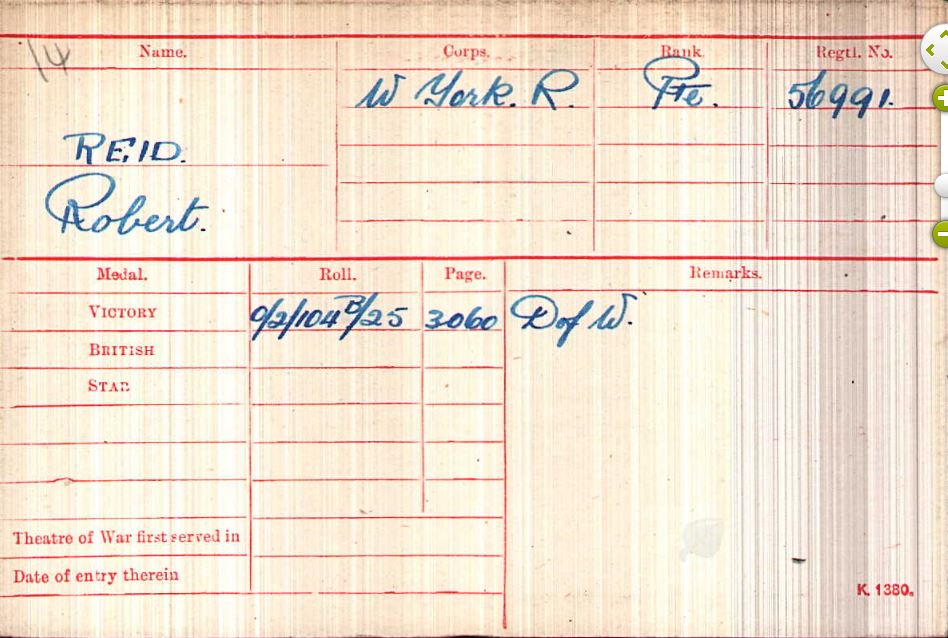 14
Name. Corps. Rank. Regtl. No.
W York. R. Pte. 56991.
REID.
Robert.
Medal. Roll. Page. Remarks.
VICTORY 0/2/104B/25 3060 D of W.
BRITISH
STAR
Theatre of War first served in
Date of entry therein
K. 1380.